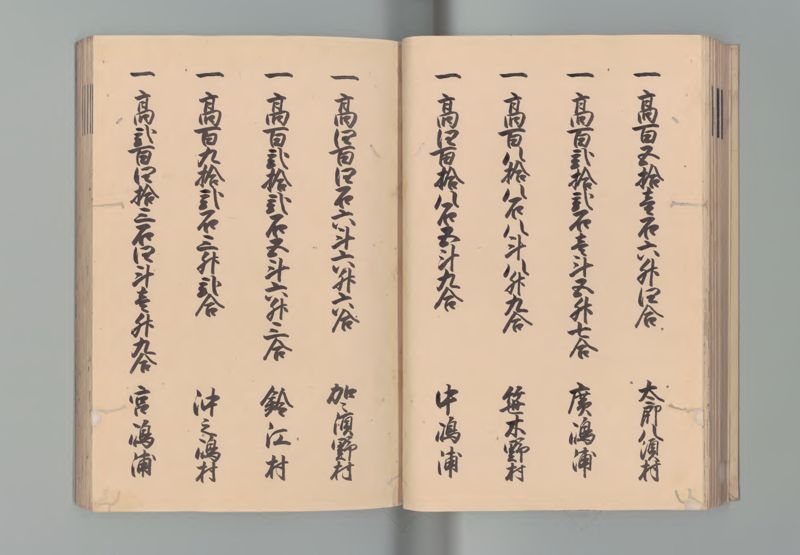 一 高百五拾壱石六升四合 太郎八須村
一 高百弐拾弐石壱斗五升七合 廣嶋浦
一 高百八拾八石八斗八升九合 笹木野村
一 高四百拾八石五斗九合 中嶋浦
一 高四百四石六斗六升六合 加々須野村
一 高百弐拾弐石五斗六升三合 鈴江村
一 高百九拾弐石三升弐合 沖之嶋村
一 高弐百四拾三石四斗壱升九合 宮嶋浦